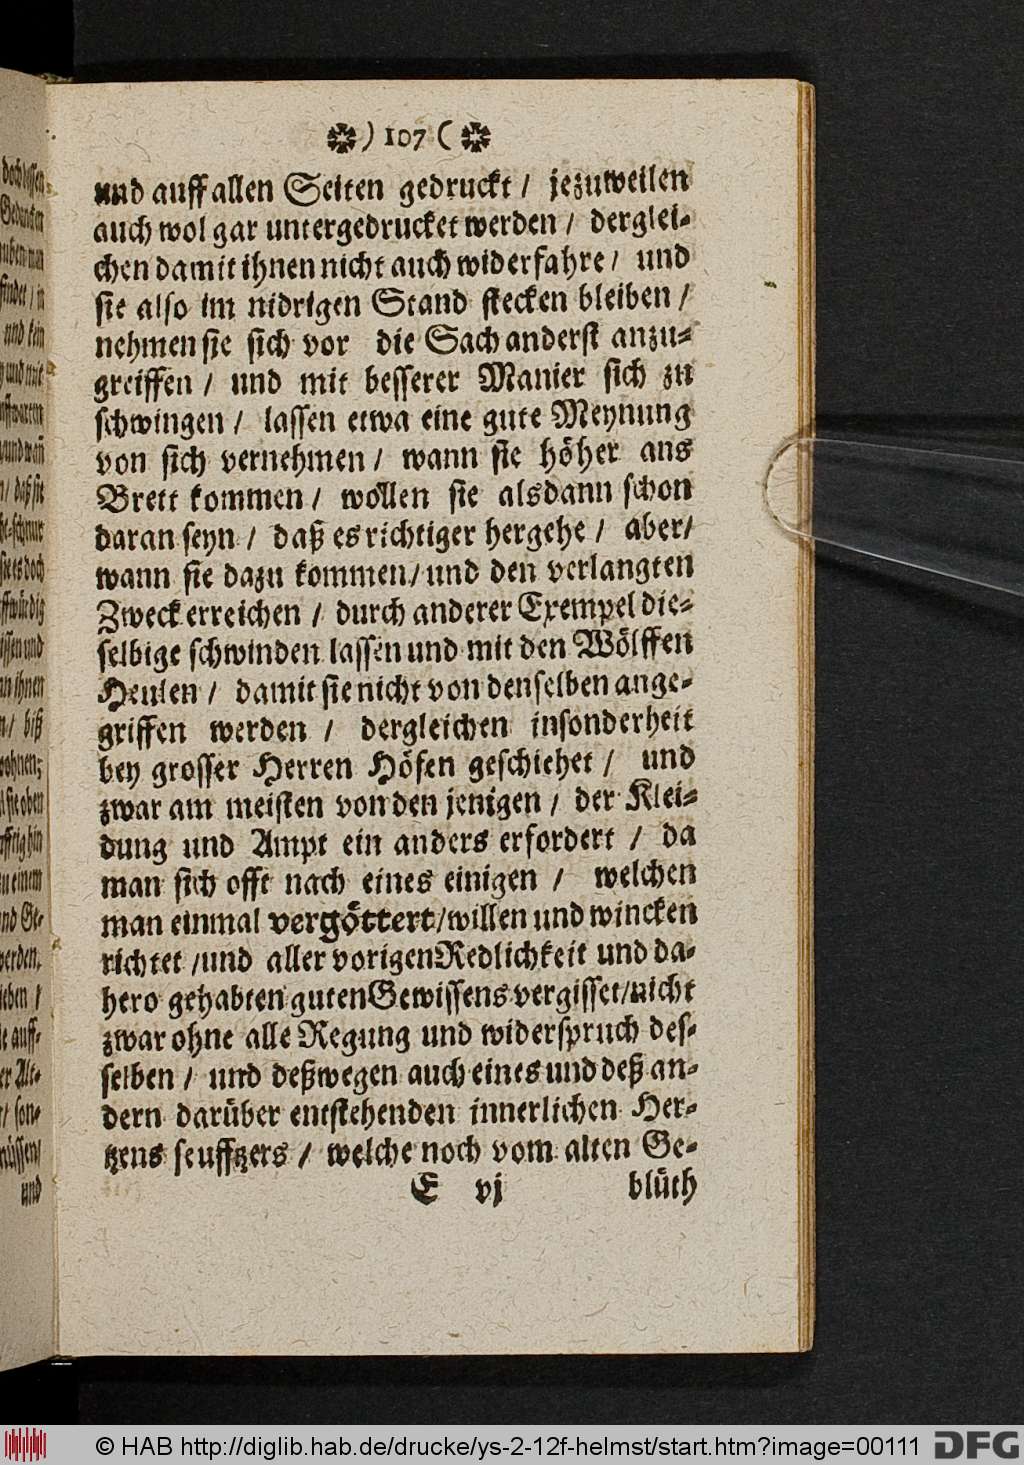 ) 107 (
und auff allen Seiten gedruckt / jezuweilen
auch wol gar untergedrucket werden / derglei-
chen damit ihnen nicht auch widerfahre / und
sie also im nidrigen Stand stecken bleiben /
nehmen sie sich vor die Sach anderst anzu-
greiffen / und mit besserer Manier sich zu
schwingen / lassen etwa eine gute Meynung
von sich vernehmen / wann sie höher ans
Brett kommen / wollen sie alsdann schon
daran seyn / daß es richtiger hergehe / aber /
wann sie dazu kommen / und den verlangten
Zweck erreichen / durch anderer Exempel die-
selbige schwinden lassen und mit den Wölffen
Heulen / damit sie nicht von denselben ange-
griffen werden / dergleichen insonderheit
bey grosser Herren Höfen geschiehet / und
zwar am meisten von den jenigen / der Klei-
dung und Ampt ein anders erfordert / da
man sich offt nach eines einigen / welchen
man einmal vergöttert / willen und wincken
richtet / und aller vorigen Redlichkeit und da-
hero gehabten guten Gewissens vergisset / nicht
zwar ohne alle Regung und widerspruch des-
selben / und deßwegen auch eines und deß an-
dern darüber entstehenden innerlichen Her-
tzens seufftzers / welche noch vom alten Ge-
E vj blüth
© HAB http://diglib.hab.de/drucke/ys-2-12f-helmst/start.htm?image=00111
DFG